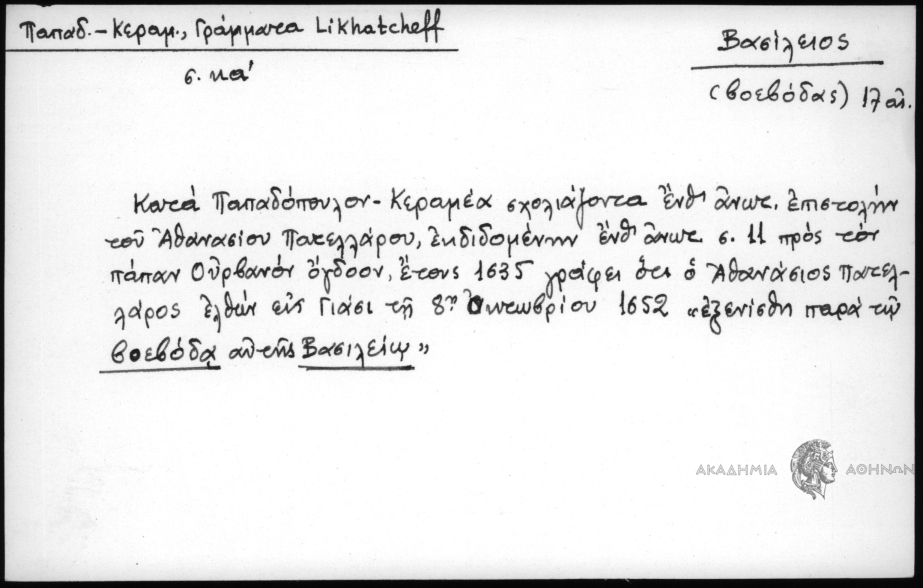 Παπαδ.-Κεραμ., Γράμματα Likhatcheff
σ. κα'
Βασίλειος
(βοεβόδας) 17 αἰ.
Κατά Παπαδόπουλον-Κεραμέα σχολιάζοντα ἔνθ' ἄνωτ. ἐπιστολήν
τοῦ Ἀθανασίου Πατελλάρου, ἐκδιδομένην ἔνθ' ἄνωτ. σ. 11 πρός τόν
πάπαν Οὐρβανόν ὄγδοον, ἔτους 1635 γράφει ὅτι ὁ Ἀθανάσιος Πατελ-
λάρος ἐλθών εἰς Γιάσι τῇ 8ῃ Ὀκτωβρίου 1652 «ἐξενίσθη παρά τῷ
βοεβόδᾳ αὐτῆς Βασιλείῳ»
ΑΚΑΔΗΜΙΑ ΑΘΗΝΩΝ